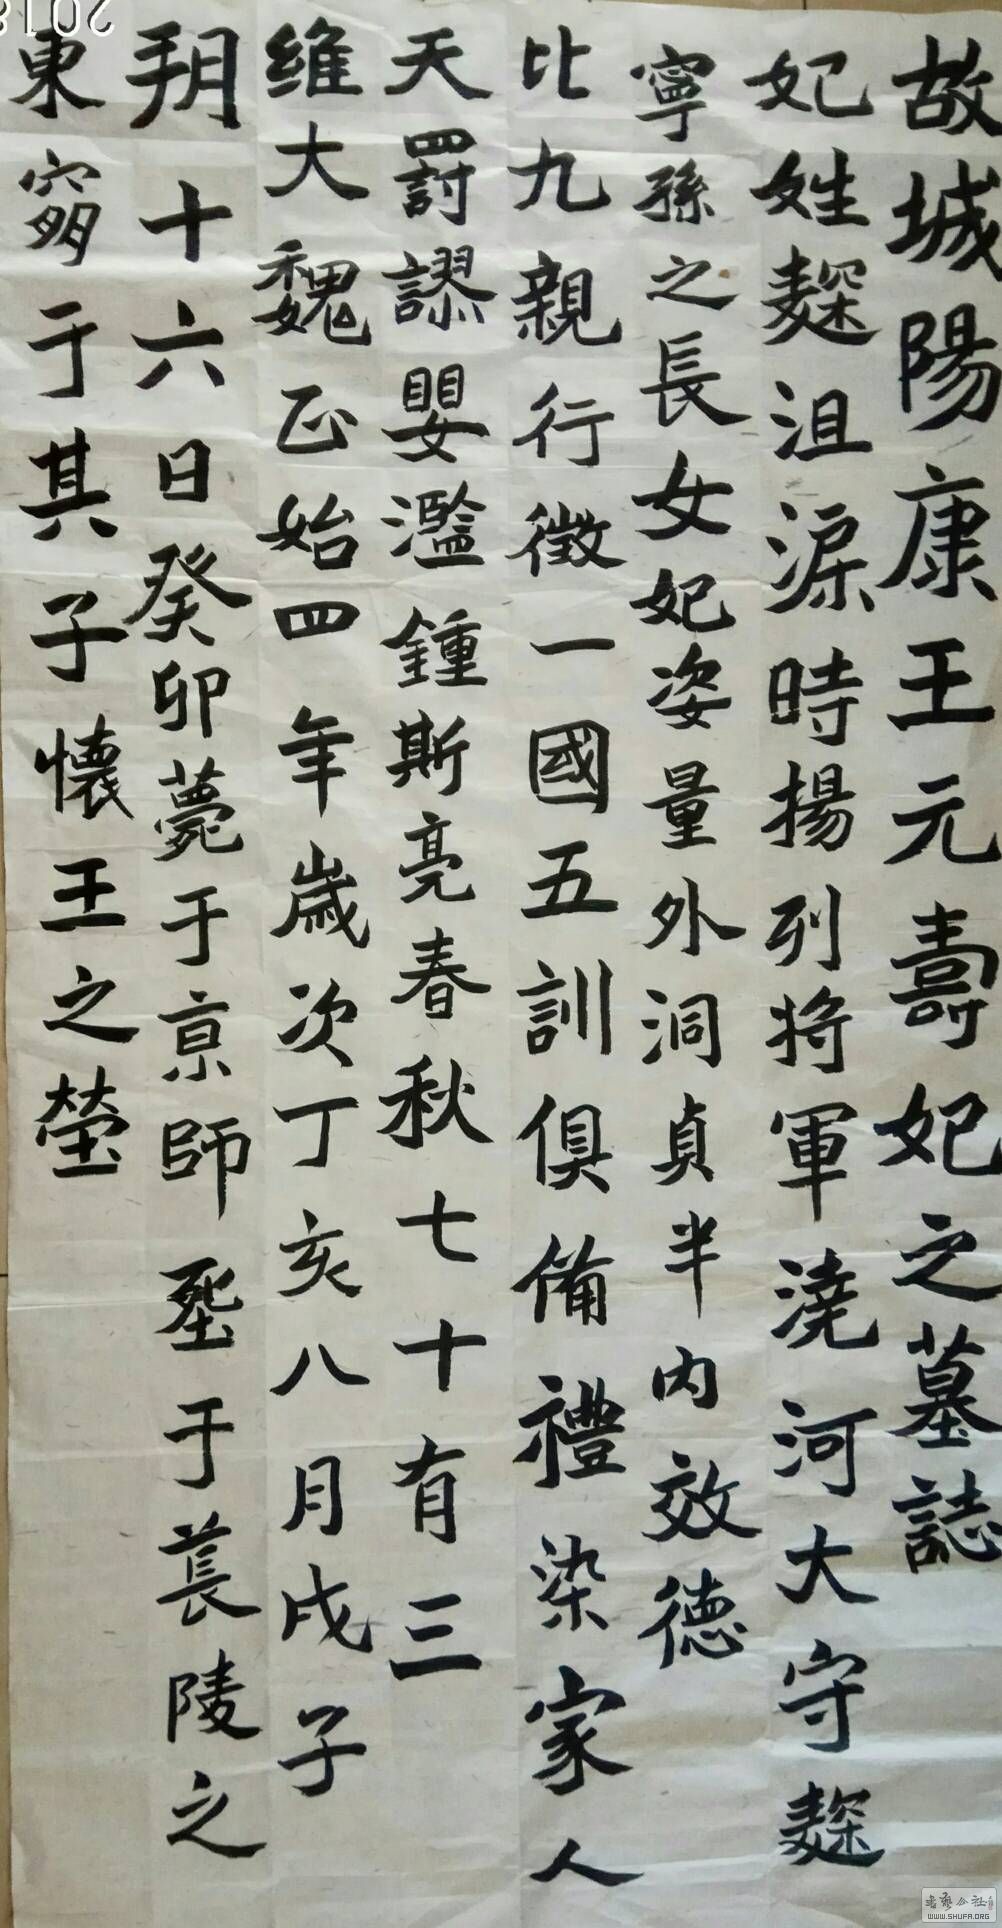 故城陽康王元壽妃之墓誌
妃姓麹沮渠時揚列將軍澆河大守麹
寧孫之長女妃姿量外洞貞半内效德
比九親行徵一國五訓俱備禮染家人
天罰謬嬰濫鍾斯亮春秋七十有三
維大魏正始四年歲次丁亥八月戊子
朔十六日癸卯薨于京師葬于萇陵之
東窮于其子懷王之塋
書藝公社
WWW.SHUFA.ORG